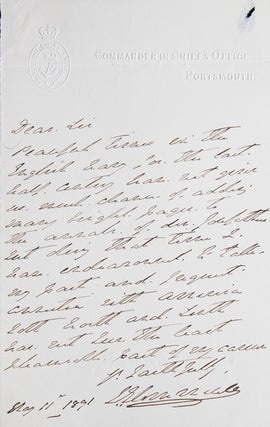 COMMANDER IN CHIEF'S OFFICE
PORTSMOUTH.
Dear Sir
Peaceful times in the
English Navy for the last
half century have not given
us much chance of adding
many bright pages to
the annals of our
but during that time I
have endeavoured to take
my part and
connection with America
both North and South
has not been the least
part of my career
Yr. faithfully
May 11th 1891